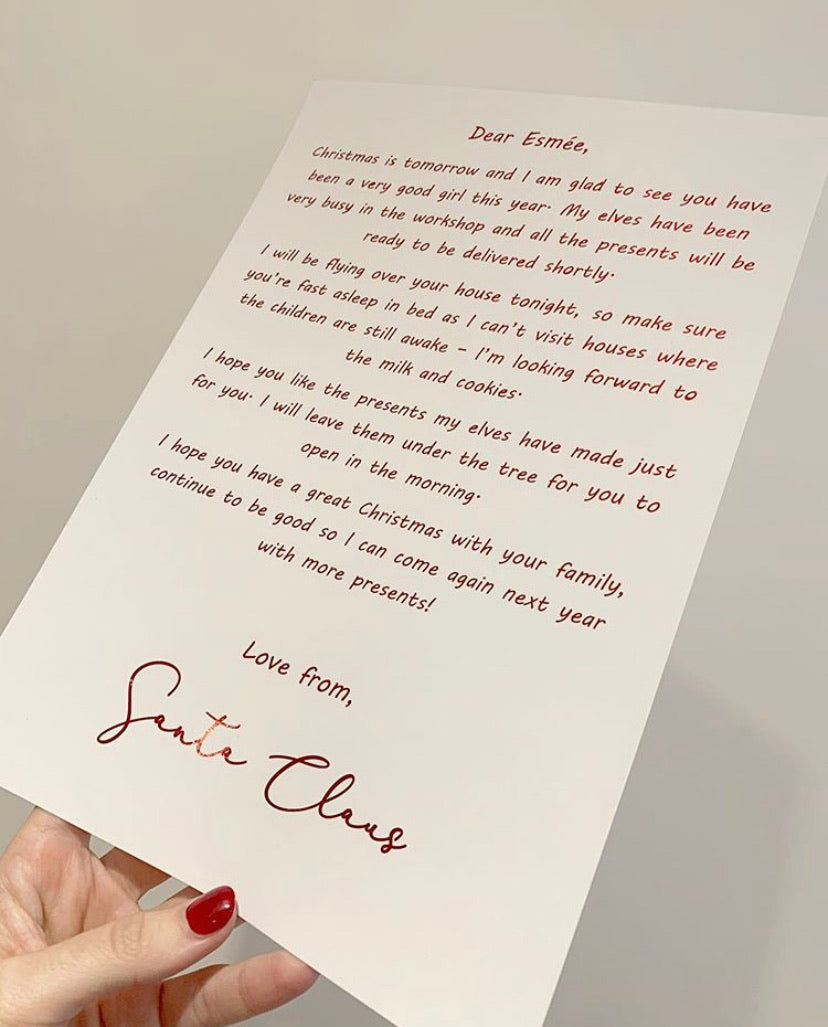 Dear Esmée,
Christmas is tomorrow and I am glad to see you have
been a very good girl this year. My elves have been
very busy in the workshop and all the presents will be
ready to be delivered shortly.
I will be flying over your house tonight, so make sure
you're fast asleep in bed as I can't visit houses where
the children are still awake – I'm looking forward to
the milk and cookies.
I hope you like the presents my elves have made just
for you. I will leave them under the tree for you to
open in the morning.
I hope you have a great Christmas with your family,
continue to be good so I can come again next year
with more presents!
Love from,
Santa Claus